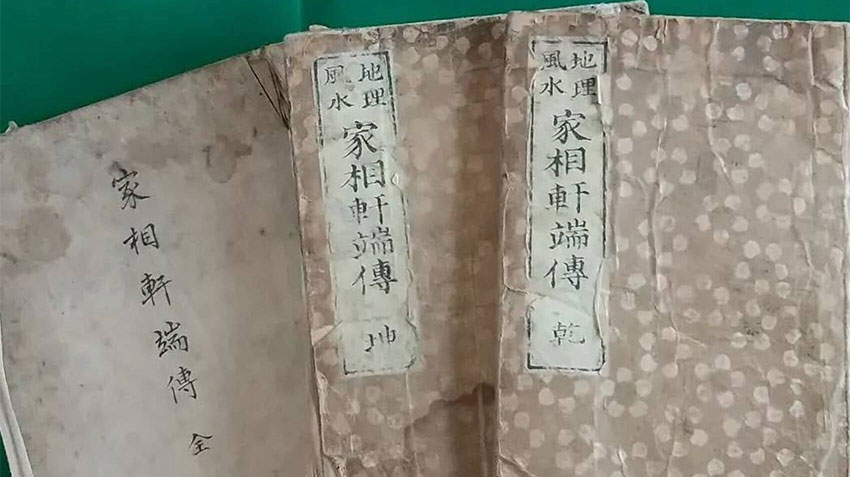 地理
風水
家相軒端傳
乾
地理
風水
家相軒端傳
坤
家相軒端傳 全